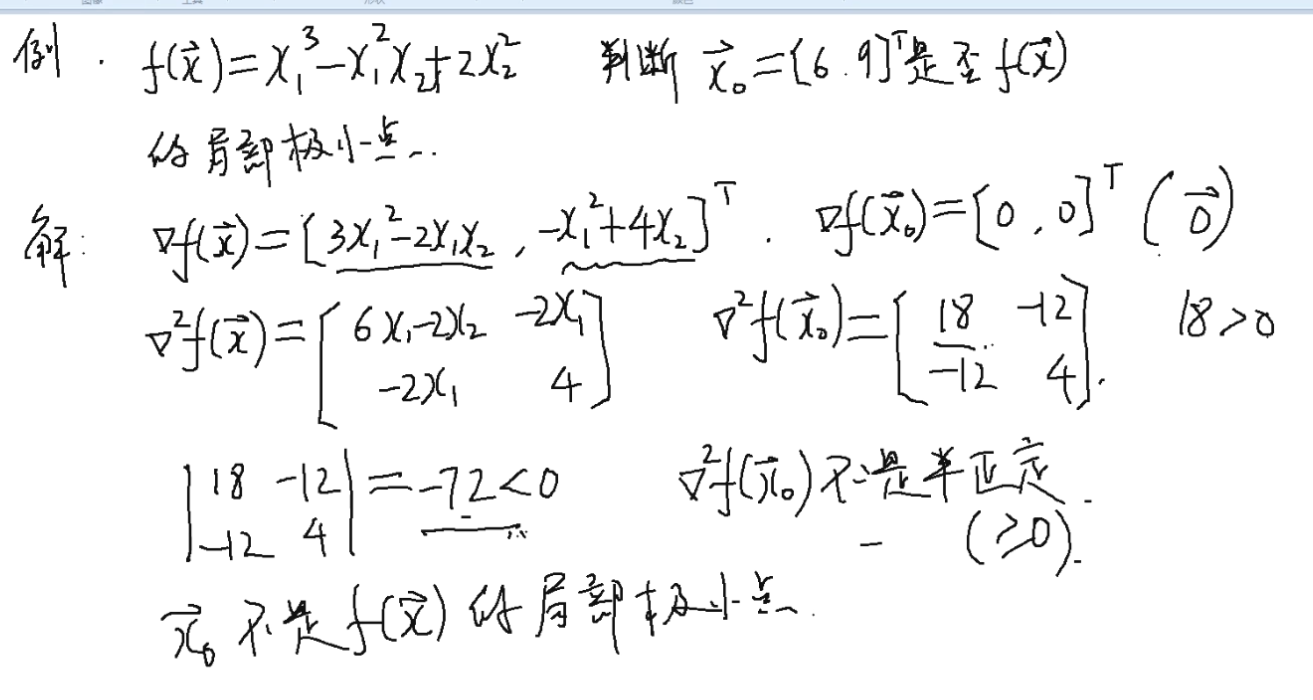 例. f(x⃗)=x₁³-x₁²x₂+2x₂² 判断 x⃗₀=[6.9]ᵀ是否f(x⃗)
的局部极小点.
解: ∇f(x⃗)=[3x₁²-2x₁x₂, -x₁²+4x₂]ᵀ. ∇f(x⃗₀)=[0,0]ᵀ (0⃗)
∇²f(x⃗)=[6x₁-2x₂ -2x₁ ∇²f(x⃗₀)=[18 -12 18>0
-2x₁ 4] -12 4].
|18 -12|=-72<0 ∇²f(x⃗₀)不是半正定.
|-12 4| (≥0).
x⃗₀不是f(x⃗)的局部极小点.